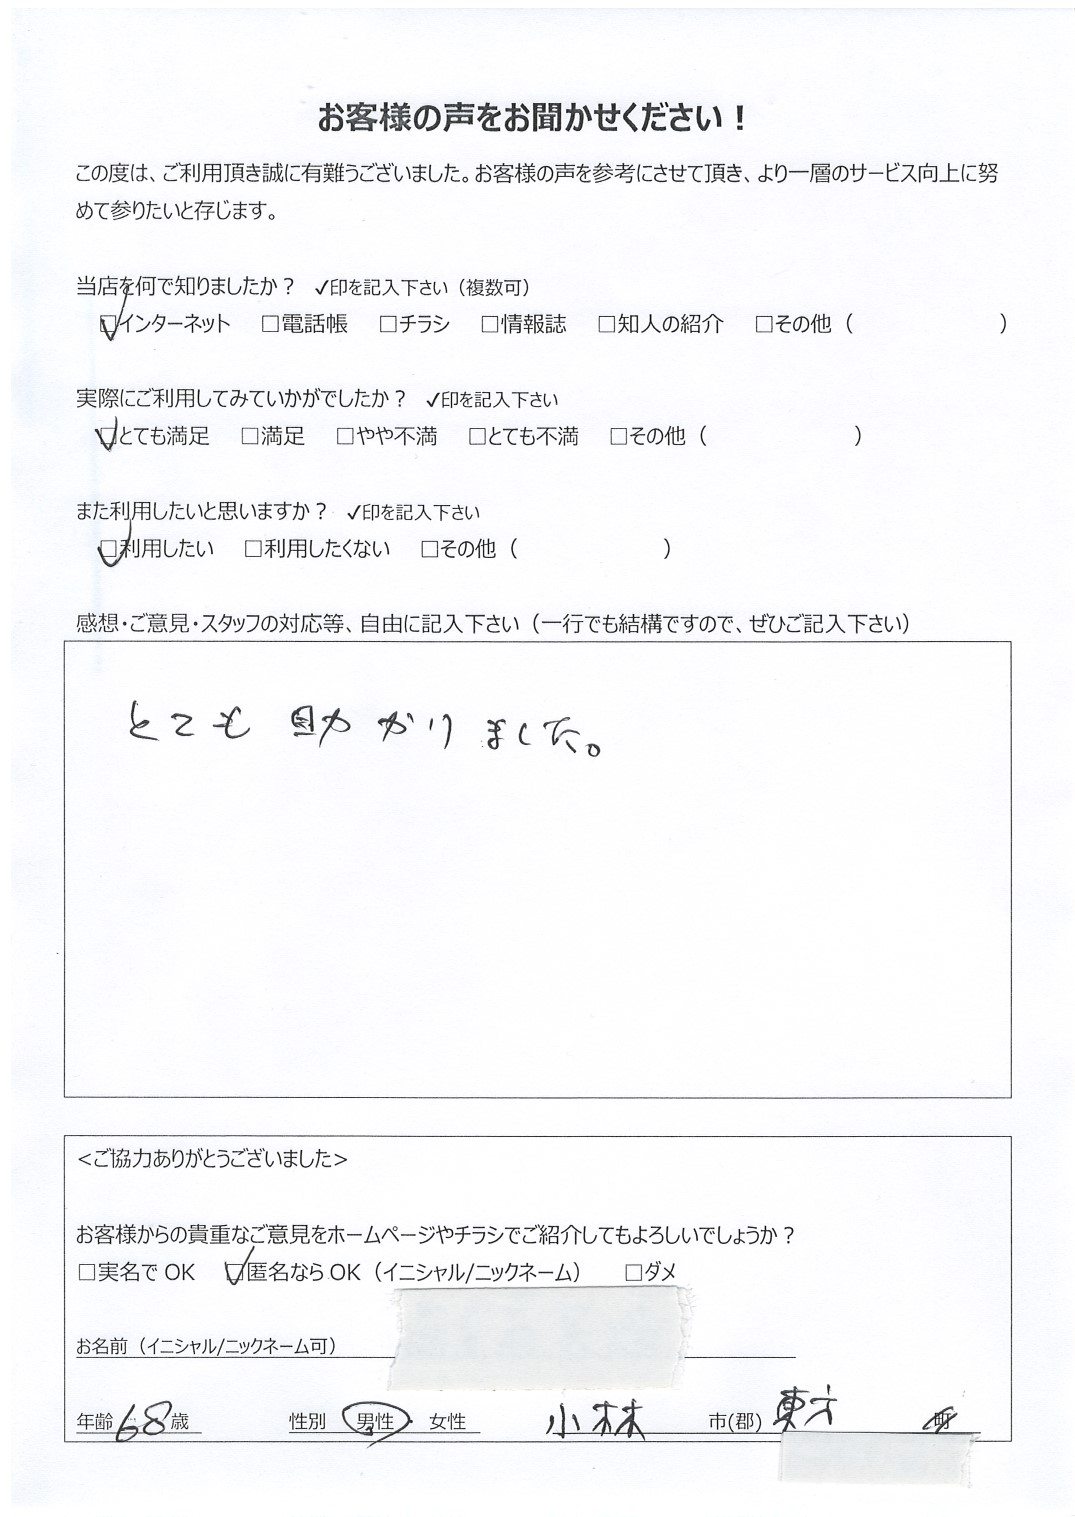 お客様の声をお聞かせください！
この度は、ご利用頂き誠に有難うございました。お客様の声を参考にさせて頂き、より一層のサービス向上に努
めて参りたいと存じます。
当店を何で知りましたか？ ✓印を記入下さい（複数可）
☑インターネット □電話帳 □チラシ □情報誌 □知人の紹介 □その他（ ）
実際にご利用してみていかがでしたか？ ✓印を記入下さい
☑とても満足 □満足 □やや不満 □とても不満 □その他（ ）
また利用したいと思いますか？ ✓印を記入下さい
☑利用したい □利用したくない □その他（ ）
感想・ご意見・スタッフの対応等、自由に記入下さい（一行でも結構ですので、ぜひご記入下さい）
とても助かりました。
<ご協力ありがとうございました>
お客様からの貴重なご意見をホームページやチラシでご紹介してもよろしいでしょうか？
□実名でOK ☑匿名ならOK（イニシャル/ニックネーム） □ダメ
お名前（イニシャル/ニックネーム可）
年齢 68 歳 性別 男性・女性 小林 市(郡) 東方 町